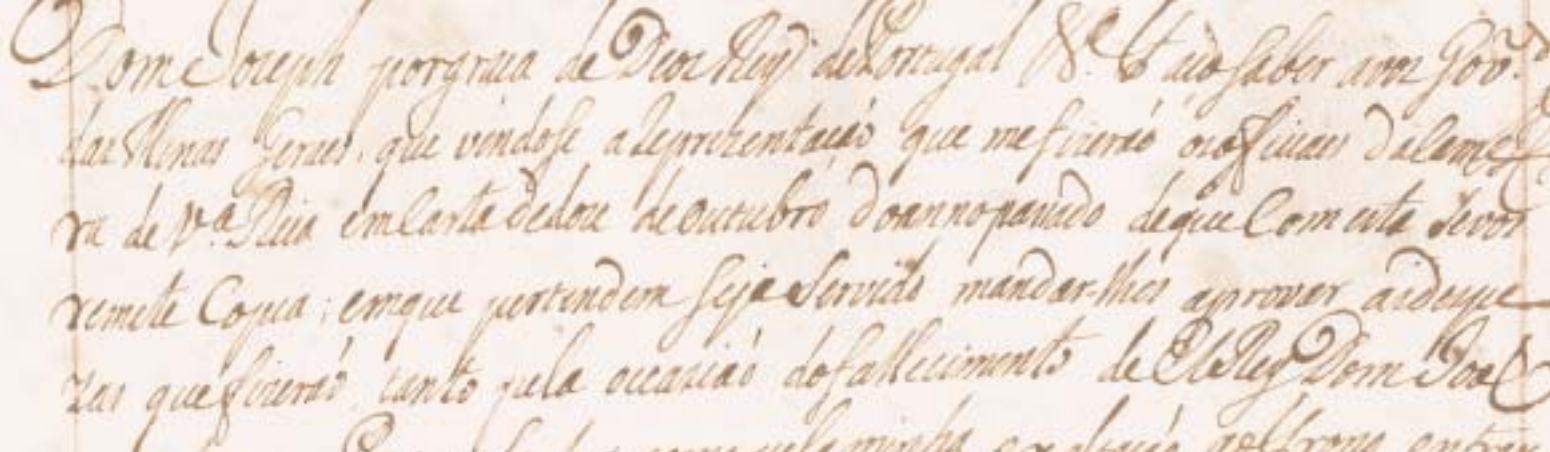 Dom Joseph por graça de Deos Rey de Portugal &c.ª Faço saber avos Gov.or
das Minas Geraes, que vendose a reprezentação que me fizerão os officiaes da Came
ra de V.ª Rica em Carta de doze de outubro do anno passado de que Com esta sevos
remete Copia; em que pertendem seja servido mandar-lhes aprovar as despe
zas que fizerão, tanto pela occazião do fallecimento de El Rey Dom João
como pela minha exaltação ao Throno